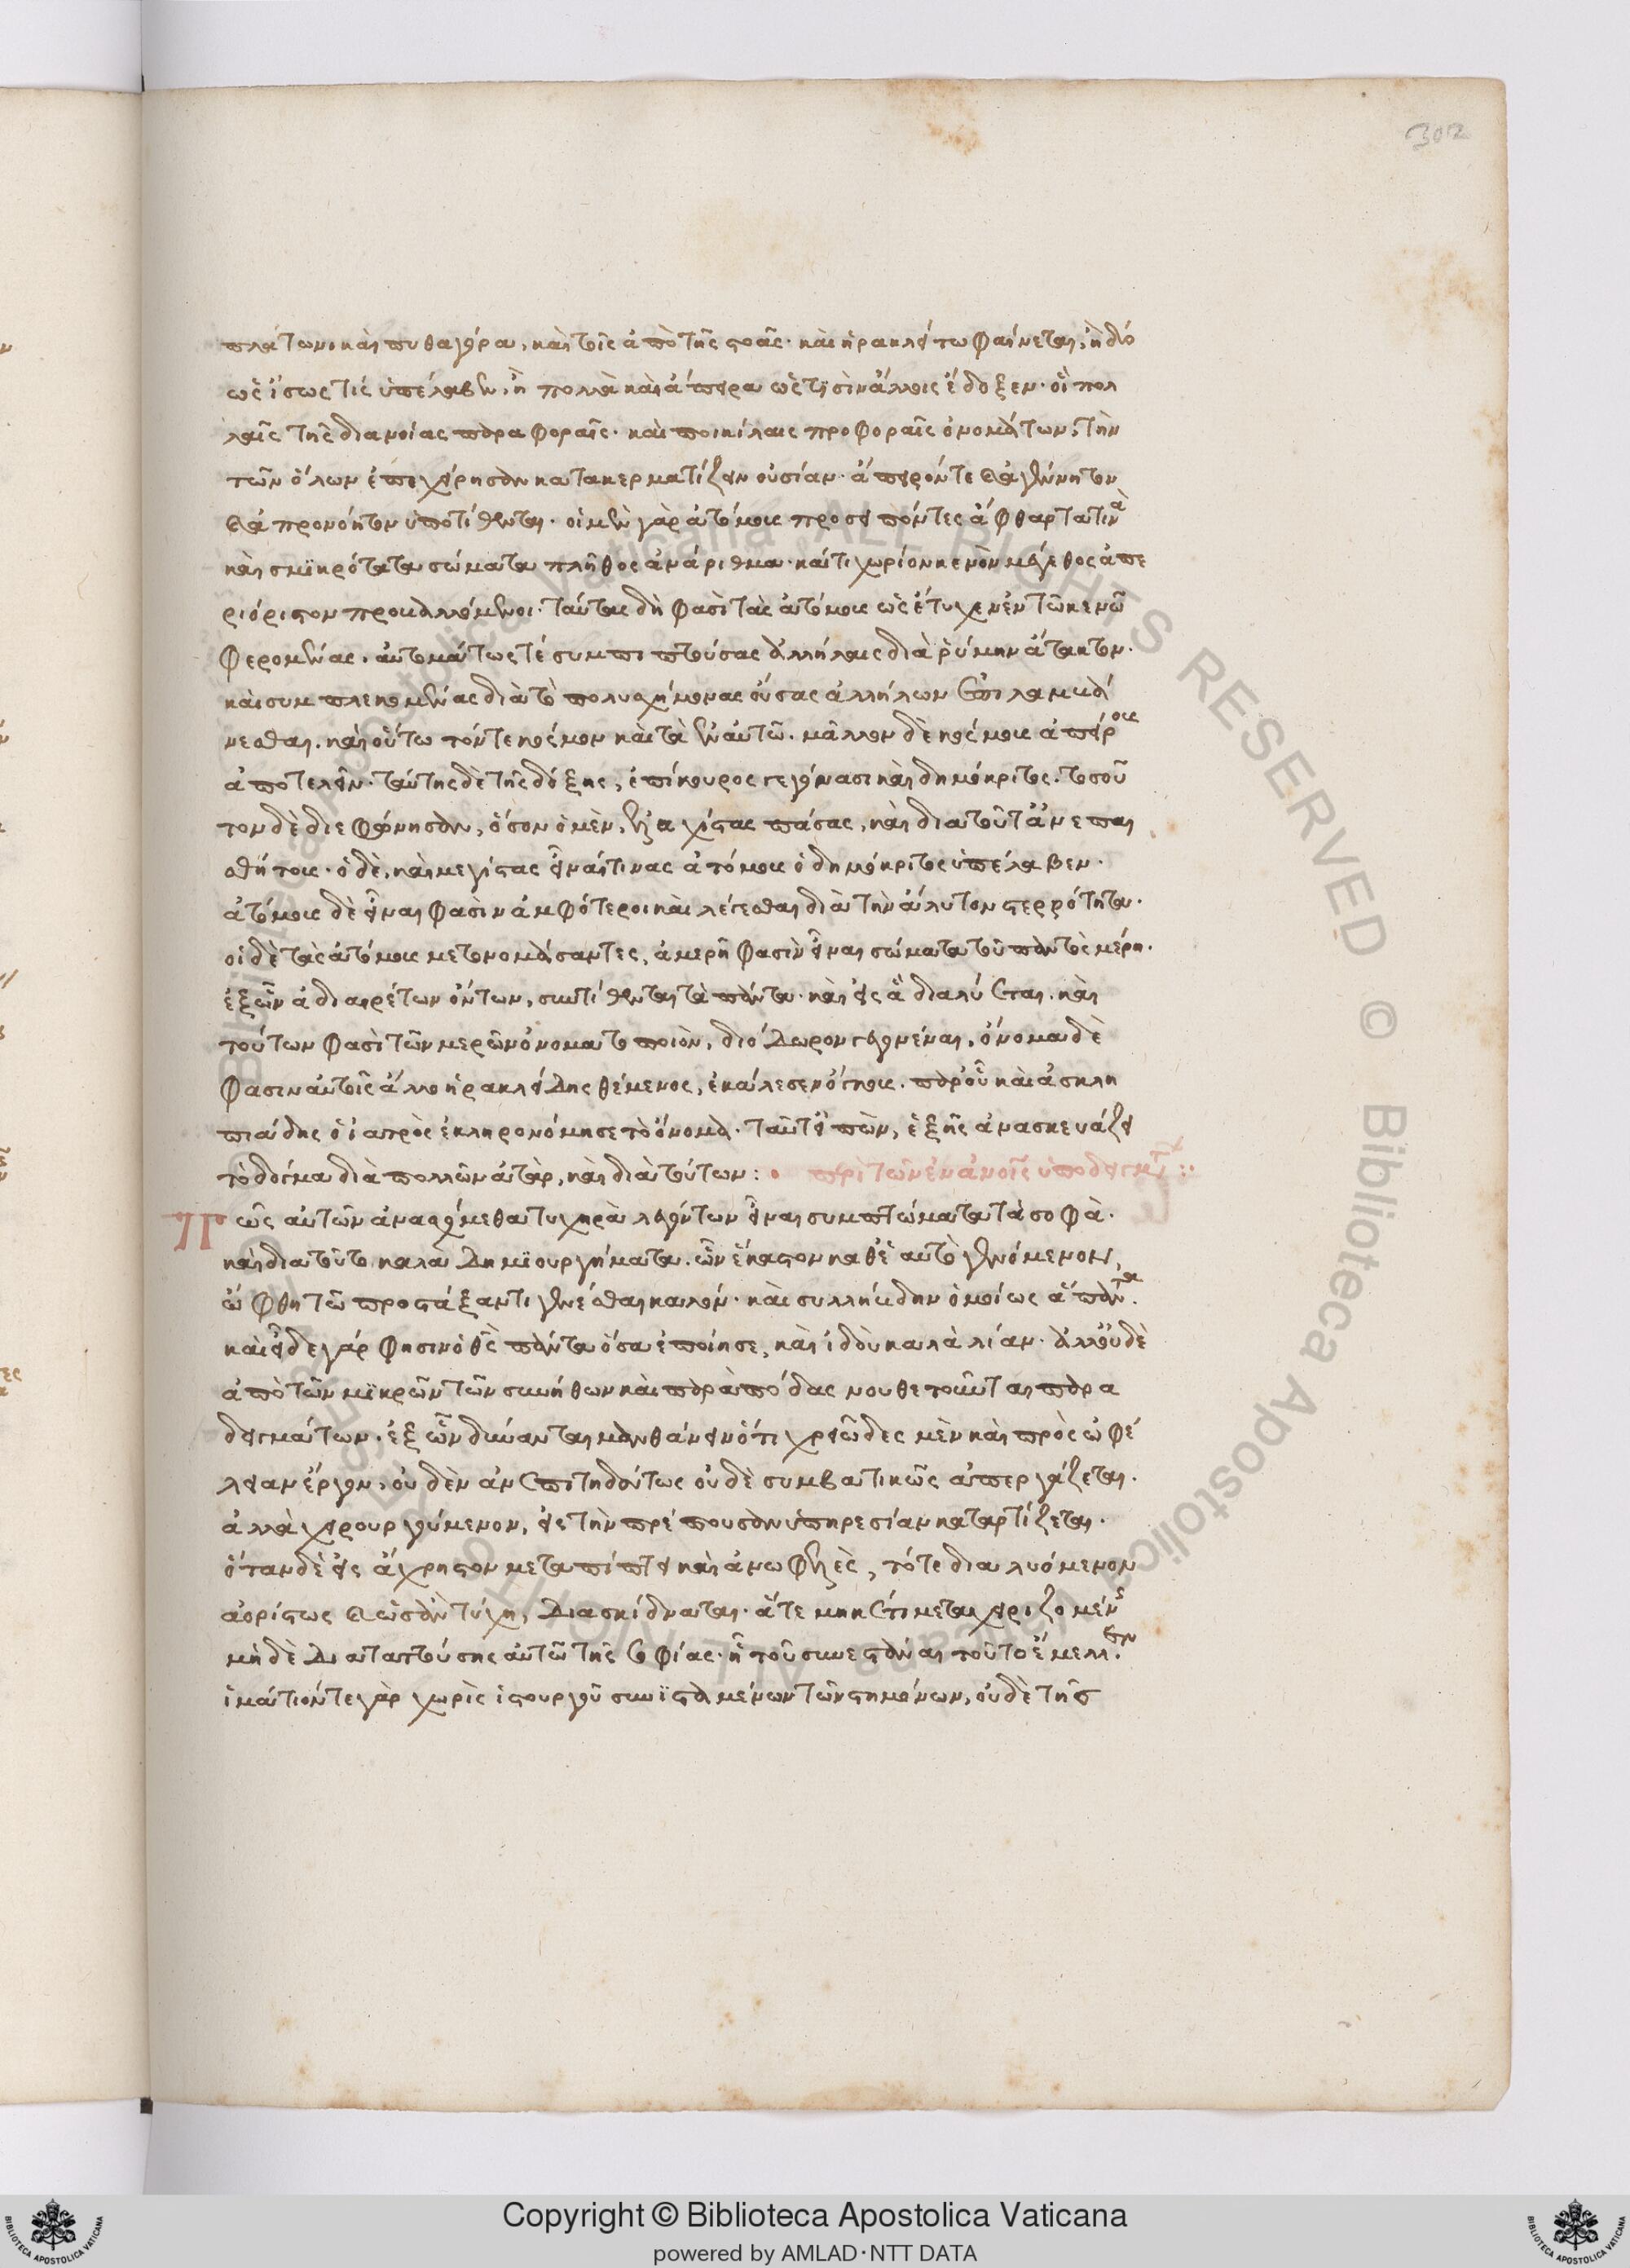 302
πλάτωνι καὶ πυθαγόρα, καὶ τοῖς ἀπὸ τῆς στοᾶς· καὶ ἡρακλείτω φαίνεται, ἢ δύο
ὡς ἴσως τὶς ὑπέλαβεν, ἢ πολλὰ καὶ ἄπειρα ὥς τισὶν ἄλλοις ἔδοξεν· οἳ πολ
λαῖς τῆς διανοίας παραφοραῖς· καὶ ποικίλαις προφοραῖς ὀνομάτων, τὴν
τῶν ὅλων ἐπεχείρησαν κατακερματίζειν οὐσίαν· ἄπειρόν τε καὶ ἀγένητον
καὶ ἀπρονόητον ὑποτίθενται· οἱ μὲν γὰρ ἀτόμους προσειπόντες ἄφθαρτά τινα
καὶ σμικρότατα σώματα πλῆθος ἀνάριθμα· καί τι χωρίον κενὸν μέγεθος ἀπε
ριόριστον προβαλλόμενοι· ταύτας δή φασὶ τὰς ἀτόμους ὡς ἔτυχεν ἐν τῶ κενῶ
φερομένας. αὐτομάτως τέ συμπιπτούσας ἀλλήλαις διὰ ῥύμην ἄτακτον.
καὶ συμπλεκομένας διὰ τὸ πολυσχήμονας οὔσας ἀλλήλων ἐπιλαμβά
νεσθαι. καὶ οὕτω τόν τε κόσμον καὶ τὰ ἐν αὐτῶ. μᾶλλον δὲ κόσμους ἀπείρους
ἀποτελεῖν· ταύτης δὲ τῆς δόξης, ἐπίκουρος γεγόνασι καὶ δημόκριτος. τοσοῦ
τον δὲ διεφώνησαν, ὅσον ὁ μὲν, ἐλαχίστας πάσας, καὶ διατοῦτ' ἀνεπαι
σθήτους· ὁ δὲ, καὶ μεγίστας εἶναί τινας ἀτόμους ὁ δημόκριτος ὑπέλαβεν.
ἀτόμους δὲ εἶναι φασὶν ἀμφότεροι καὶ λέγεσθαι διὰ τὴν ἄλυτον στερρότητα.
οἱ δὲ τὰς ἀτόμους μετονομάσαντες, ἀμερῆ φασὶν εἶναι σώματα τοῦ παντὸς μέρη.
ἐξ ὧν ἀδιαιρέτων ὄντων, συντίθενται τὰ πάντα· καὶ εἰς ἃ διαλύεται. καὶ
τούτων φασὶ τῶν μερῶν ὀνοματοποιὸν, διόδωρον γεγονέναι. ὄνομα δὲ
φασιν αὐτοῖς ἄλλο ἡρακλείδης θέμενος, ἐκάλεσεν ὄγκους. παρ' οὗ καὶ ἀσκλη
πιάδης ὁ ἰατρὸς ἐκληρονόμησε τὸ ὄνομα· ταῦτ' εἰπὼν, ἑξῆς ἀνασκευάζει
τὸ δόγμα διὰ πολλῶν ἀτὰρ, καὶ διὰ τούτων:
Πῶς αὐτῶν ἀνασχώμεθα τυχηρὰ λεγόντων εἶναι συμπτώματα τὰ σοφὰ·
καὶ διατοῦτο καλὰ δημιουργήματα. ὧν ἕκαστον καθ' ἑαυτὸ γενόμενον,
ὤφθη τῶ προστάξαντι γενέσθαι καλόν· καὶ συλλήβδην ὁμοίως ἅπαντα.
καὶ εἶδε γάρ φησιν ὁ θς πάντα ὅσα ἐποίησε, καὶ ἰδοὺ καλὰ λίαν· ἀλλ' οὐδὲ
ἀπὸ τῶν μικρῶν τῶν συνήθων καὶ παρὰ πόδας νουθετοῦνται παρα
δειγμάτων· ἐξ ὧν δύνανται μανθάνειν ὅτι χρειῶδες μὲν καὶ πρὸς ὠφέ
λειαν ἔργον, οὐδὲν ἀνεπιτηδεύτως οὐδὲ συμβατικῶς ἀπεργάζεται.
ἀλλὰ χειρουργούμενον, εἰς τὴν πρέπουσαν ὑπηρεσίαν καταρτίζεται.
ὅταν δὲ εἰς ἄχρηστον μεταπίπτει καὶ ἀνωφελὲς, τότε διαλυόμενον
ἀορίστως καὶ ὡσὰν τύχη, διασκίδναται. ἅτε μηκέτι μεταχειριζομένης
μήδὲ διαταττούσης αὐτῶ τῆς σοφίας· ἧ τοῦ συνεστάναι τοῦτο ἔμελλεν.
ἱμάτιόν τε γὰρ χωρὶς ἱστουργοῦ συνϊσταμένων τῶν στημόνων, οὐδὲ τῆς
Copyright © Biblioteca Apostolica Vaticana
powered by AMLAD·NTT DATA